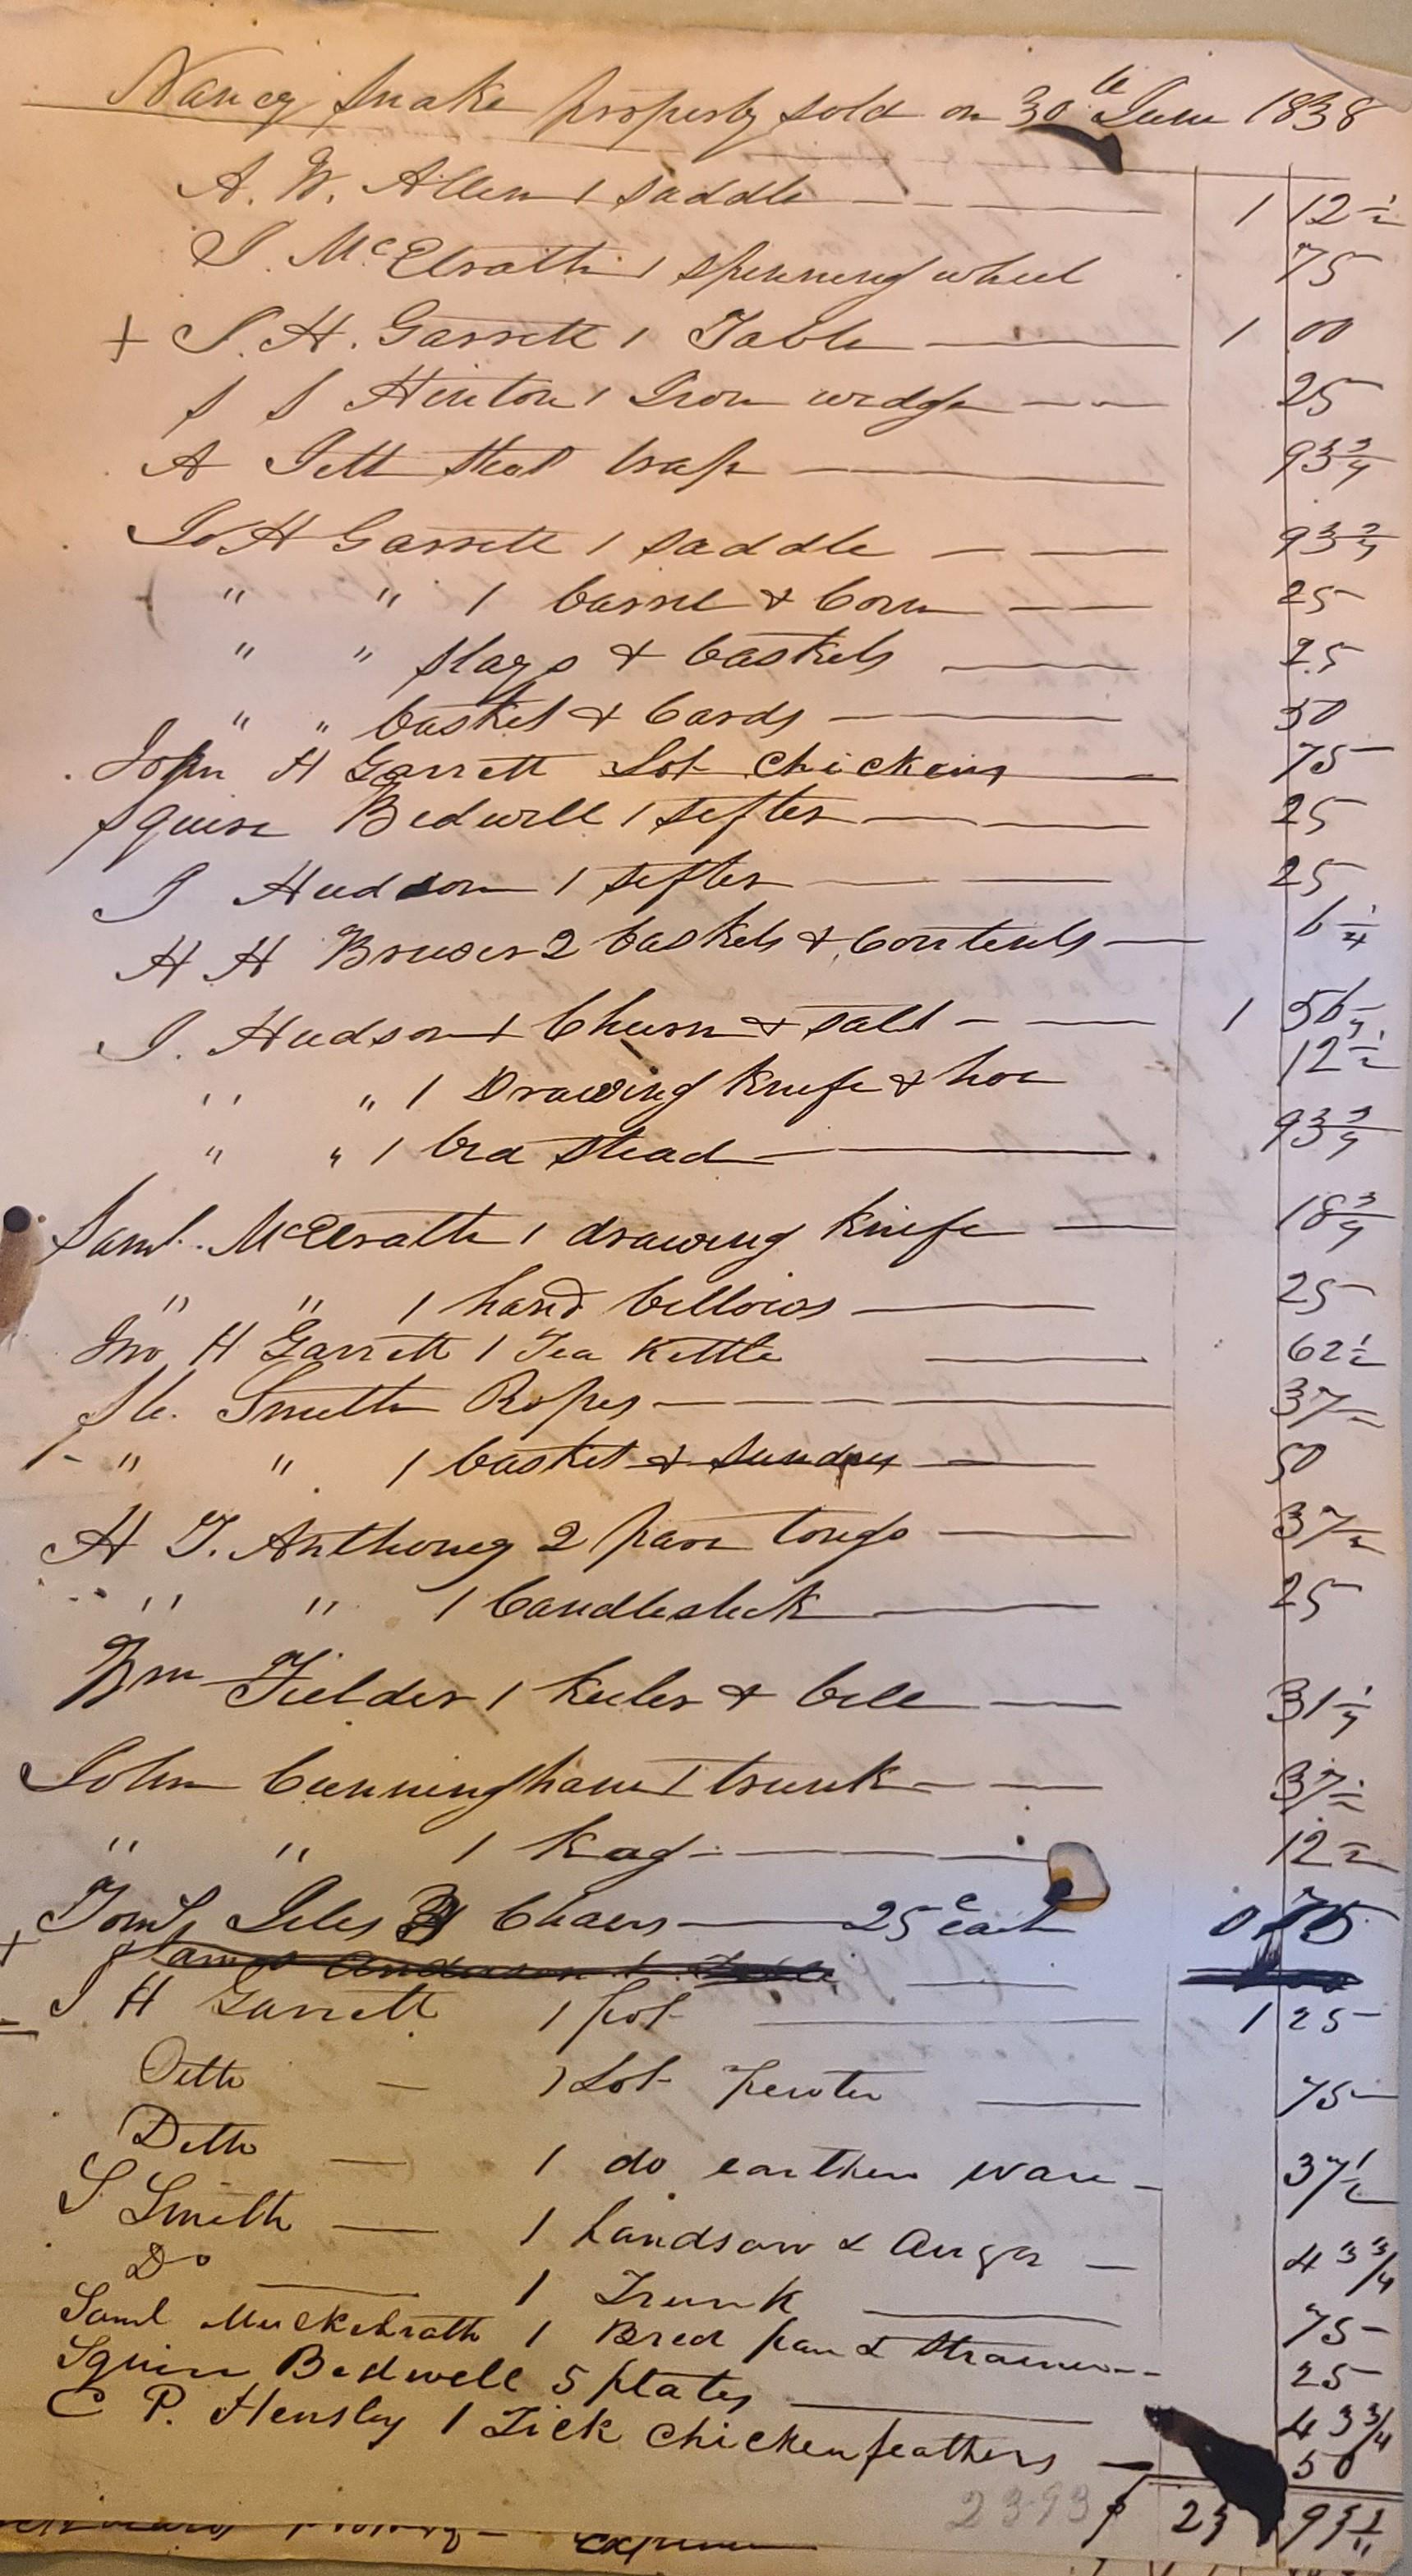 Nancy Snake property sold on 30th June 1838
A. W. Allen 1 saddle 1 12 1/2
J. McElrath 1 spinning wheel 75
+ J. H. Garrett 1 Table 1 00
S S Hinton 1 Iron wedge 25
A Jett Steel trap 93 3/4
Jo H Garrett 1 saddle 93 3/4
" " 1 barrel & Corn 25
" " slays & baskets 25
" " basket & Cards 50
John H Garrett Lot chickens 75
Squire Bedwell 1 sifter 25
J Hudson 1 sifter 25
H H 2 baskets & Contents 6 1/4
J. Hudson 1 Churn & salt 1 56
" " 1 Drawing Knife & hoe 12 1/2
" " 1 bed stead 93 3/4
Saml. McElrath 1 drawing Knife 18 3/4
" " 1 hand bellows 25
Jno H Garrett 1 Tea Kettle 62 1/2
Smith Ropes 37
" " 1 basket & sundry 50
H T. Anthony 2 pair tongs 37
" " 1 Candlestick 25
Wm Fielder 1 Keeler & bell 31 1/4
John Cunningham 1 trunk 37 1/2
" " 1 Kag 12
Giles 3 Chairs 25 c each 0 75
James Anderson 1 Table
J H Garrett 1 pot 1 25
Ditto 1 Lot Pewter 75
Ditto 1 do earthen ware 37 1/2
S Smith 1 handsaw & Auger 43 3/4
Do 1 Trunk 75
Saml Muckelrath 1 Bred pan & Strainer 25
Squire Bedwell 5 plates 43 3/4
C P. Hensley 1 Tick chicken feathers 50
2393 $ 23 93
expenses